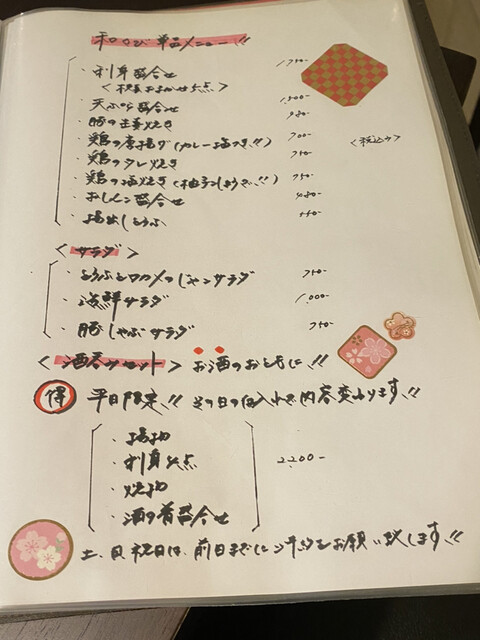 和くび 単品メニュー!!
・刺身盛合せ 1,750-
<板長おまかせ5点>
・天ぷら盛合せ 1,500-
・豚の生姜焼き 980-
・鶏の唐揚げ(カレー塩つき!!) 700-
<税込み>
・鶏のタレ焼き 750-
・鶏の塩焼き(柚子こしょう!!) 750-
・おしんこ盛合せ 480-
・揚出しとうふ 550-
<サラダ>
・とうふとワカメのじゃこサラダ 750-
・海鮮サラダ 1,000-
・豚しゃぶサラダ 750-
<酒呑みセット> お酒のおともに!!
得 平日限定!! その日の仕入れで内容変わります!!
・揚物
・刺身4点 2,200-
・焼物
・酒の肴盛合せ
土、日、祝日は、前日までに予約をお願い致します!!